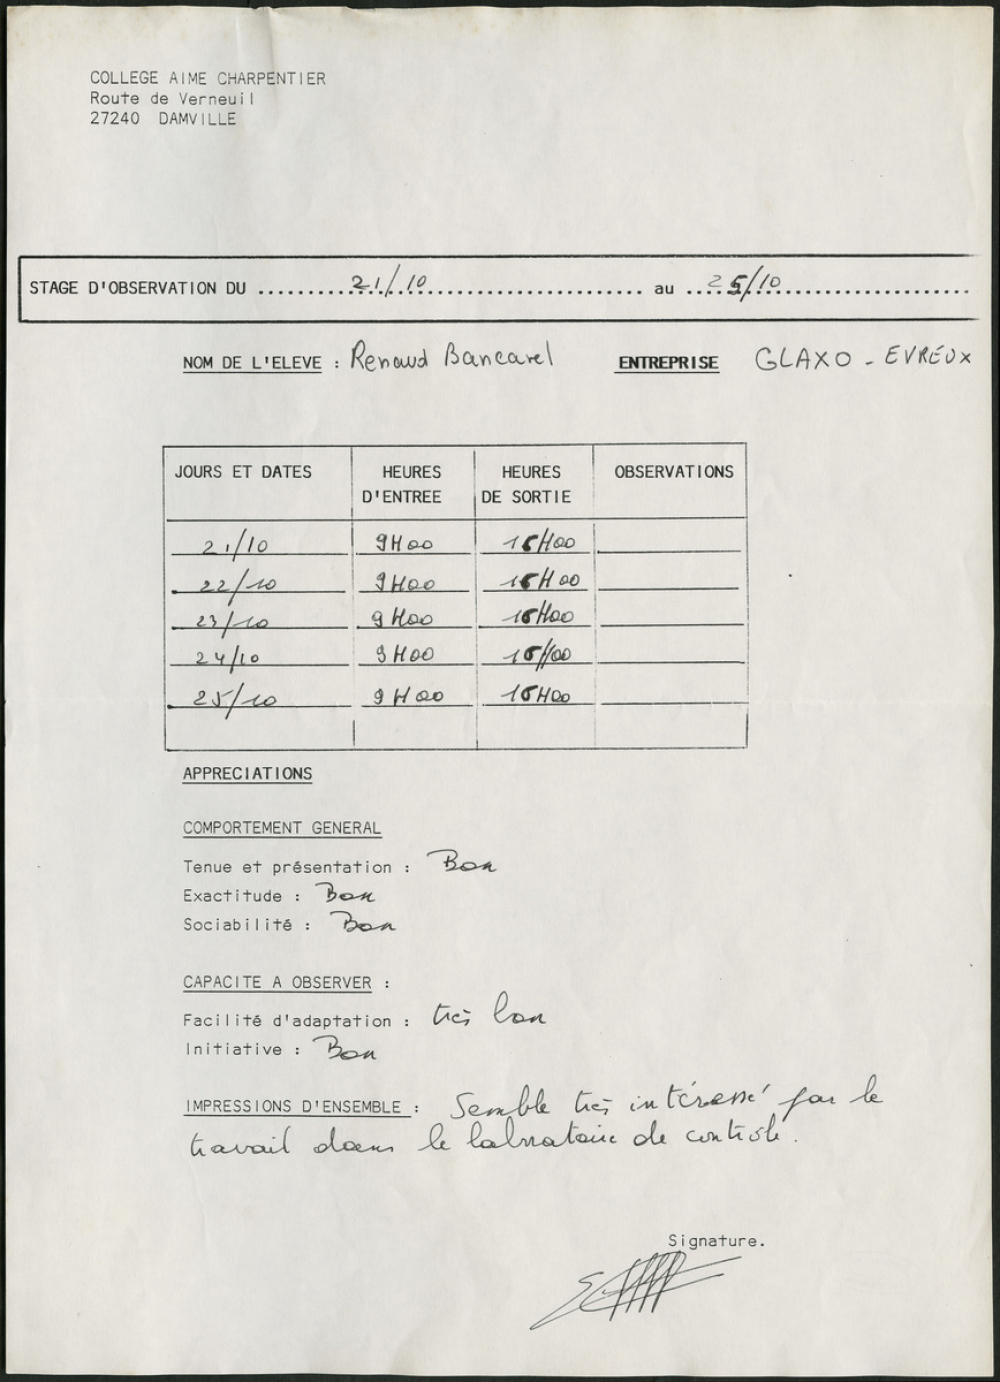 COLLEGE AIME CHARPENTIER
Route de Verneuil
27240 DAMVILLE
STAGE D'OBSERVATION DU ..........21/10.......................... au ...25/10.......................
NOM DE L'ELEVE : Renaud Bancarel ENTREPRISE GLAXO - EVREUX
JOURS ET DATES HEURES D'ENTREE HEURES DE SORTIE OBSERVATIONS
21/10 9H00 16H00
22/10 9H00 16H00
23/10 9H00 16H00
24/10 9H00 16H00
25/10 9H00 16H00
APPRECIATIONS
COMPORTEMENT GENERAL
Tenue et présentation : Bon
Exactitude : Bon
Sociabilité : Bon
CAPACITE A OBSERVER :
Facilité d'adaptation : très bon
Initiative : Bon
IMPRESSIONS D'ENSEMBLE : Semble très intéressé par le
travail dans le laboratoire de contrôle.
Signature.